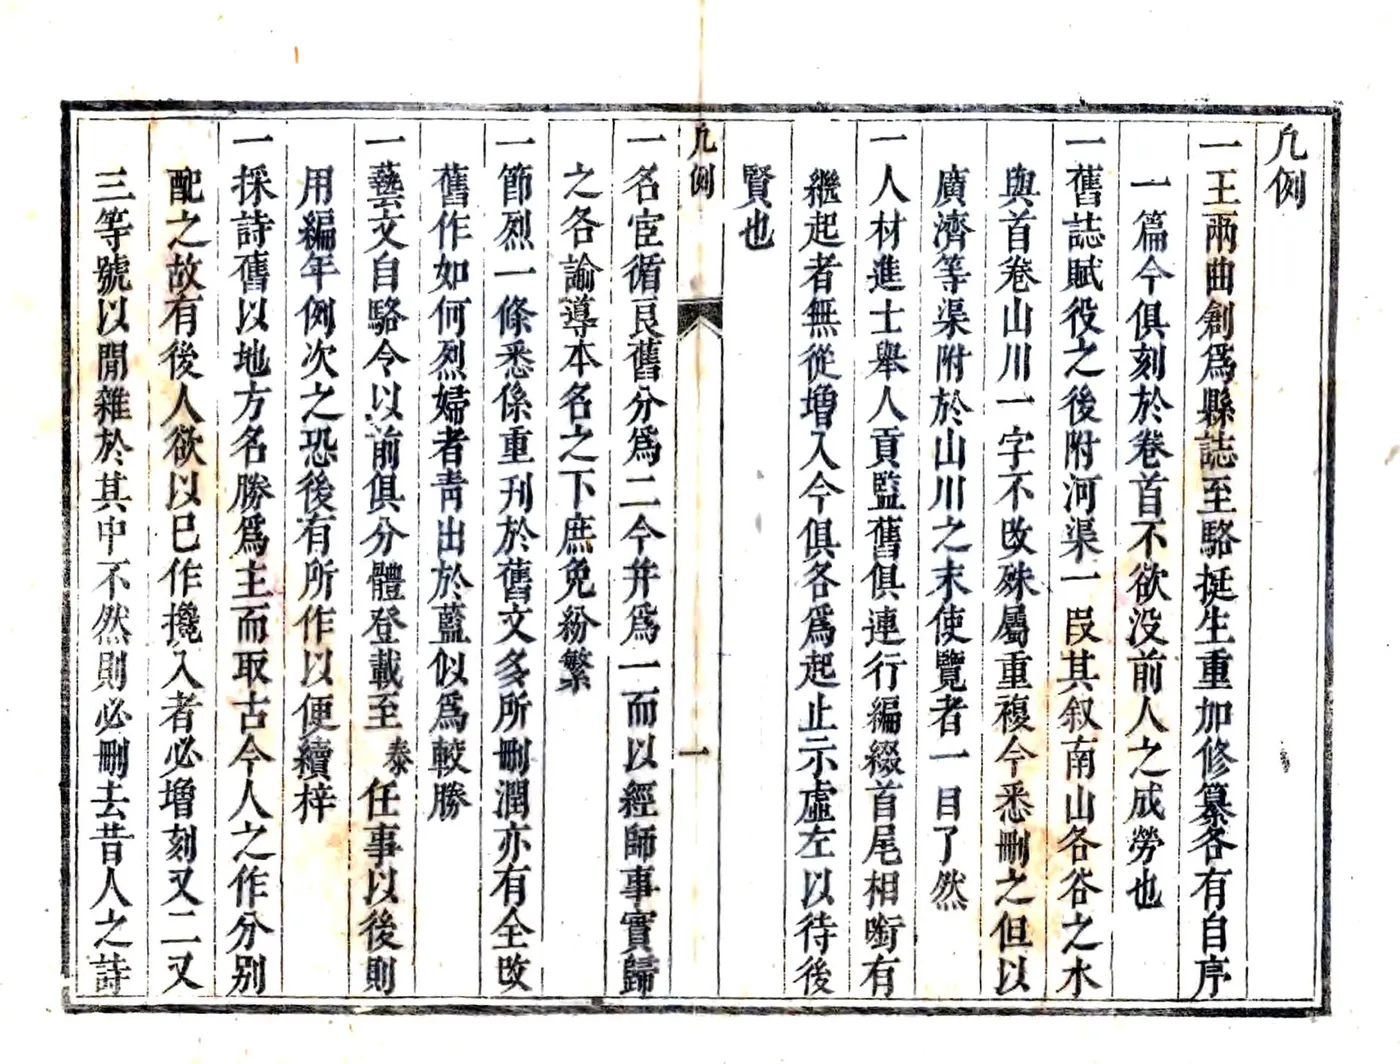 凡例
一王兩曲創爲縣誌至駱挺生重加修纂各有自序
一篇今俱刻於卷首不欲没前人之成勞也
一舊誌賦役之後附河渠一段其叙南山各谷之水
與首卷山川一字不改殊屬重複今悉刪之但以
廣濟等渠附於山川之末使覽者一目了然
一人材進士舉人貢監舊俱連行編綴首尾相銜有
繼起者無從增入今俱各爲起止示虛左以待後
賢也
凡例
一
一名宦循良舊分爲二今并爲一而以經師事實歸
之各諭導本名之下庶免紛繁
一節烈一條悉係重刊於舊文多所刪潤亦有全改
舊作如何烈婦者青出於藍似爲較勝
一藝文自駱令以前俱分體登載至泰任事以後則
用編年例次之恐後有所作以便續梓
一採詩舊以地方名勝爲主而取古今人之作分别
配之故有後人欲以已作攙入者必增刻又二又
三等號以閒雜於其中不然則必刪去昔人之詩